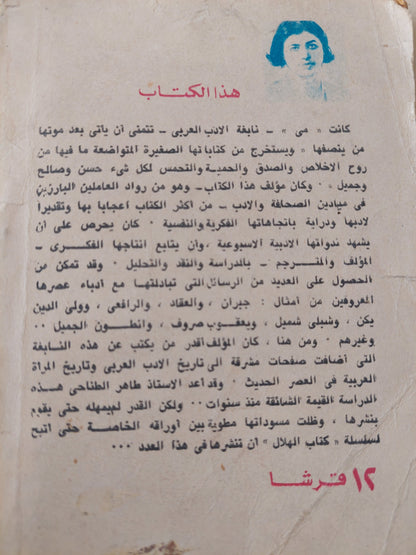 هذا الكتاب
كانت « مى » ـ نابغة الادب العربى ـ تتمنى أن يأتى بعد موتها
من ينصفها « ويستخرج من كتاباتها الصغيرة المتواضعة ما فيها من
روح الاخلاص والصدق والحمية والتحمس لكل شىء حسن وصالح
وجميل » ٠ وكان مؤلف هذا الكتاب ـ وهو من رواد العاملين البارزين
فى ميادين الصحافة والادب ـ من اكثر الكتاب اعجابا بها وتقديرا
لادبها ودراية باتجاهاتها الفكرية والنفسية ٠ كان يحرص على أن
يشهد ندواتها الادبية الاسبوعية ، وان يتابع انتاجها الفكرى ـ
المؤلف والمترجم ـ بالدراسة والنقد والتحليل ٠ وقد تمكن من
الحصول على العديد من الرسائل التى تبادلتها مع أدباء عصرها
المعروفين من أمثال : جبران ، والعقاد ، والرافعى ، وولى الدين
يكن ، وشبلى شميل ، ويعقوب صروف ، وانطون الجميل ٠٠
وغيرهم ٠ ومن هنا ، كان المؤلف أقدر من يكتب عن هذه النابغة
التى أضافت صفحات مشرقة الى تاريخ الادب العربى وتاريخ المراة
العربية فى العصر الحديث ٠ وقد أعد الاستاذ طاهر الطناحى هذه
الدراسة القيمة الشائقة منذ سنوات ٠٠ ولكن القدر لم يمهله حتى يقوم
بنشرها ، وظلت مسوداتها مطوية بين أوراقه الخاصة حتى اتيح
لسلسلة « كتاب الهلال » أن تنشرها فى هذا العدد ٠٠٠
١٢ قرشا